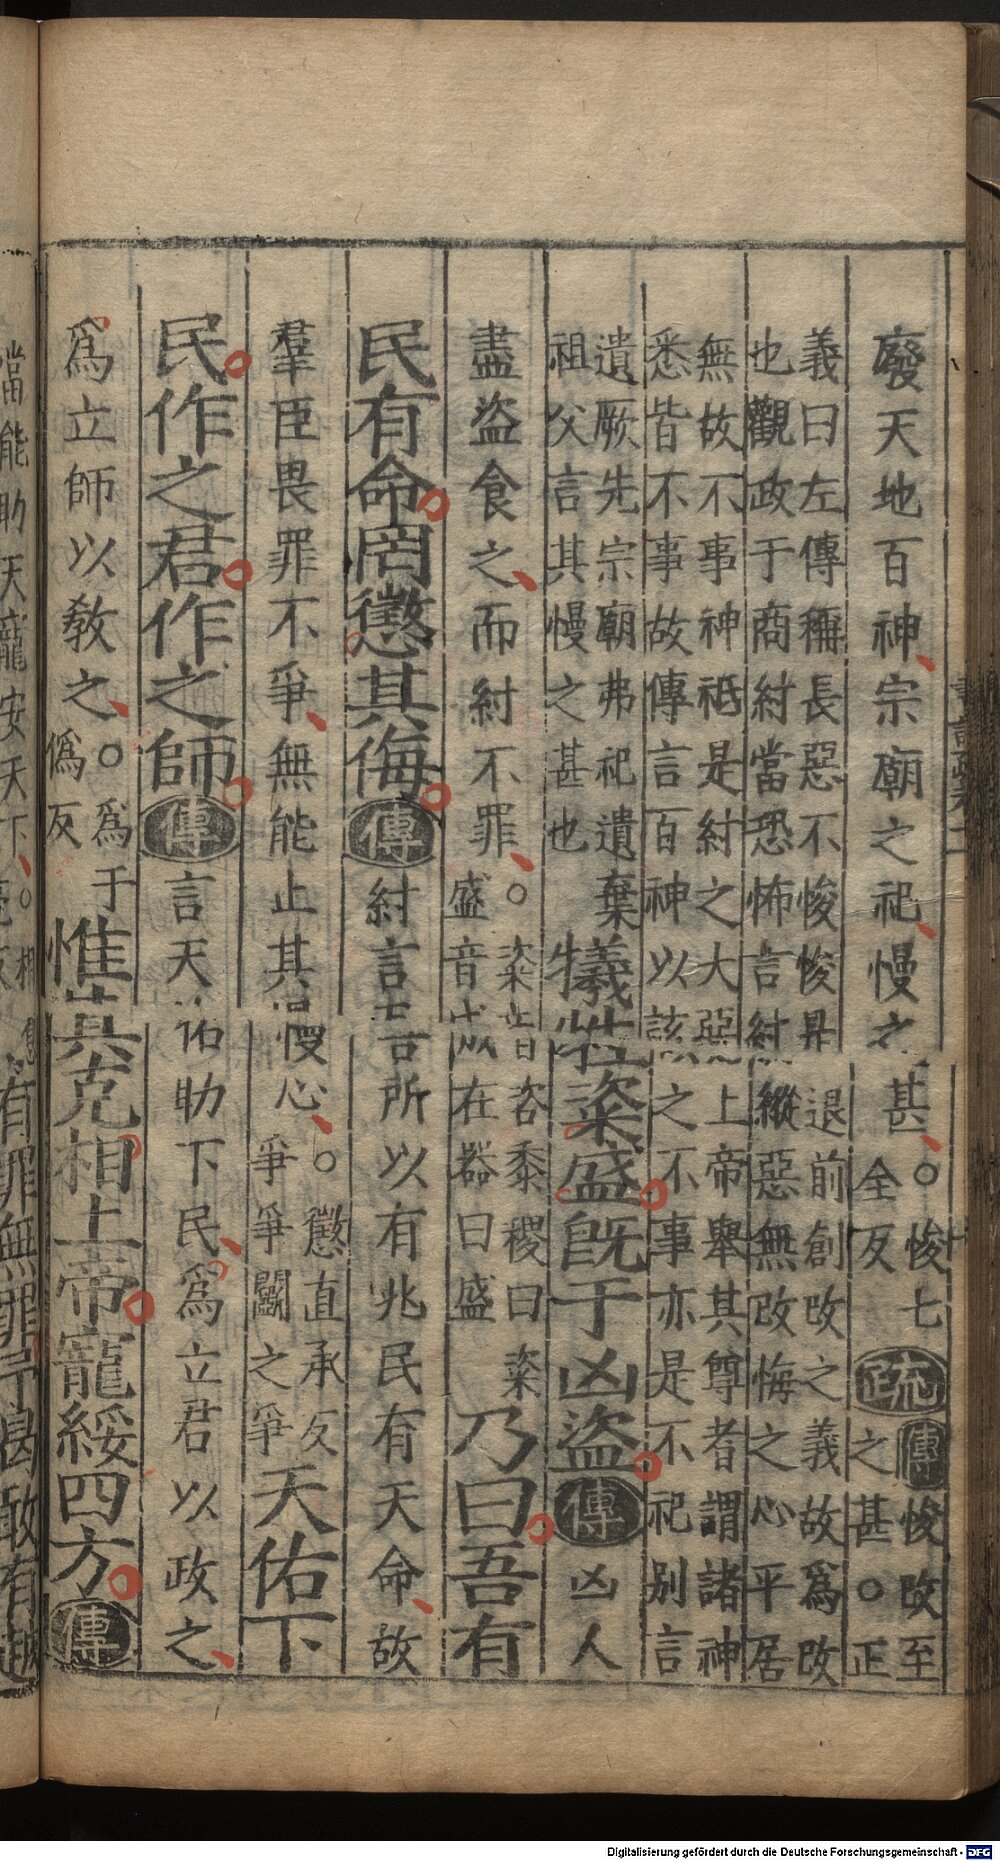 廢天地百神宗廟之祀慢之甚○悛七全反疏傳悛改至之甚○正
義曰左傳稱長惡不悛悛是退前創改之義故爲改
也觀政于商紂當恐怖言紂縱惡無改悔之心平居
無故不事神祇是紂之大惡上帝舉其尊者謂諸神
悉皆不事故傳言百神以該之不事亦是不祀别言
遺厥先宗廟弗祀遺棄
祖父言其慢之甚也
犧牲粢盛旣于凶盗傳凶人
盡盗食之而紂不罪○粢音咨黍稷曰粢盛音成在器曰盛乃曰吾有
民有命罔懲其侮傳紂言吾所以有兆民有天命故
羣臣畏罪不爭無能止其慢心○懲直承反爭爭鬭之爭天佑下
民作之君作之師傳言天佑助下民爲立君以政之
爲立師以敎之○爲于僞反惟其克相上帝寵綏四方傳
當能助天寵安天下○相息有罪無罪予曷敢有越
Digitalisierung gefördert durch die Deutsche Forschungsgemeinschaft - DFG